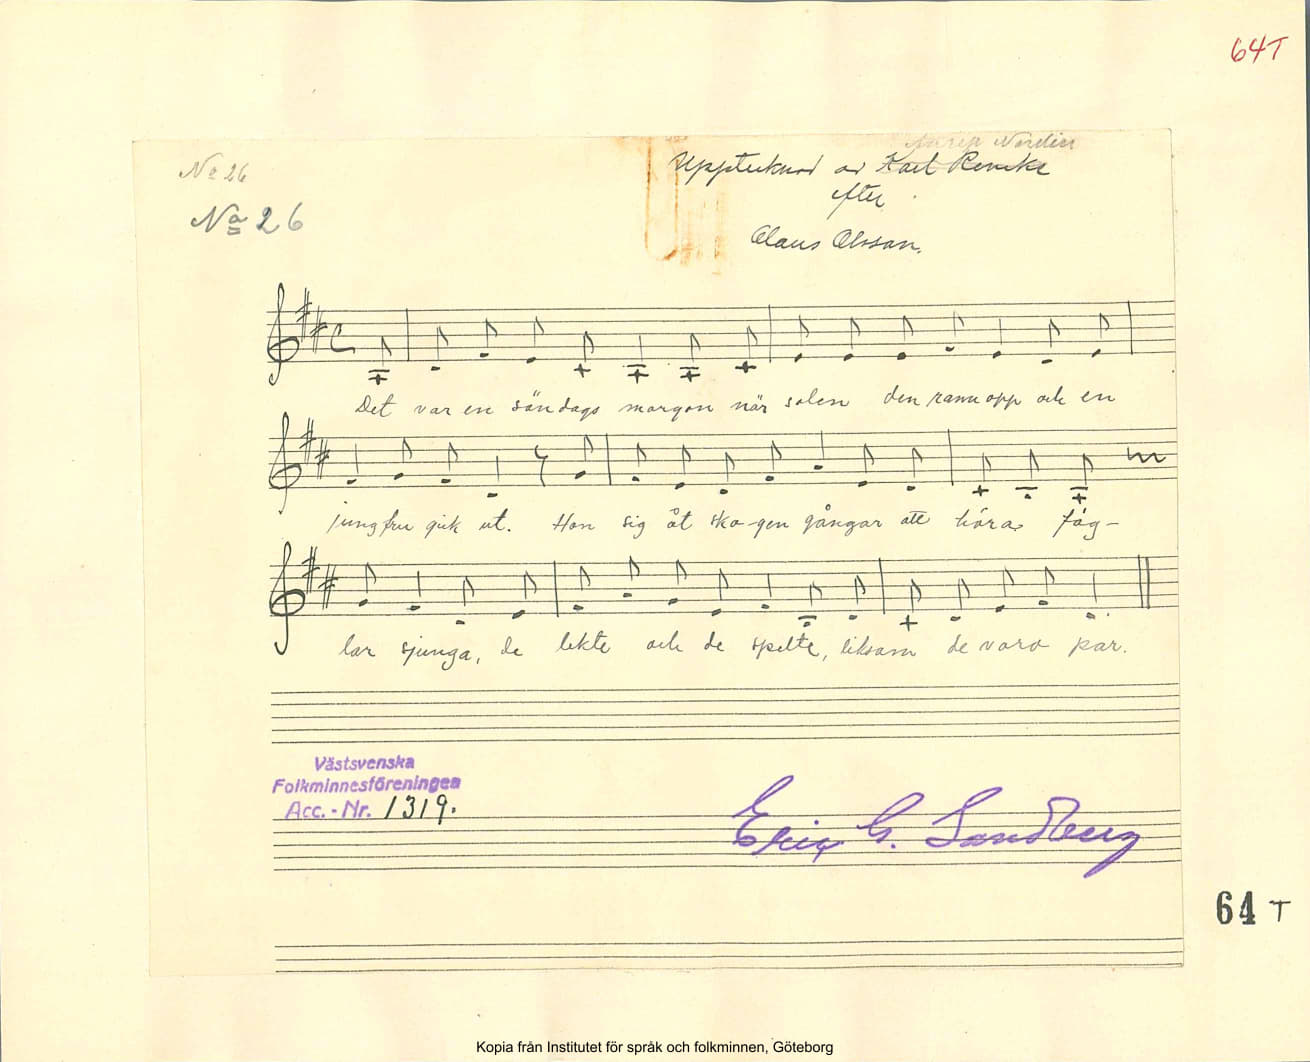 64 T
Nordin
No 26
Upptecknad av Karl
No 26
efter
Claus Olsson.
Det var en söndags morgon när solen den rann opp och en
jungfru gick ut. Hon sig åt sko-gen gångar att höra fåg-
lar sjunga, de lekte och de spelte, liksom de voro par.
Västsvenska
Folkminnesföreningen
Acc.-Nr. 1319.
Erix G. Sandberg
64 T
Kopia från Institutet för språk och folkminnen, Göteborg